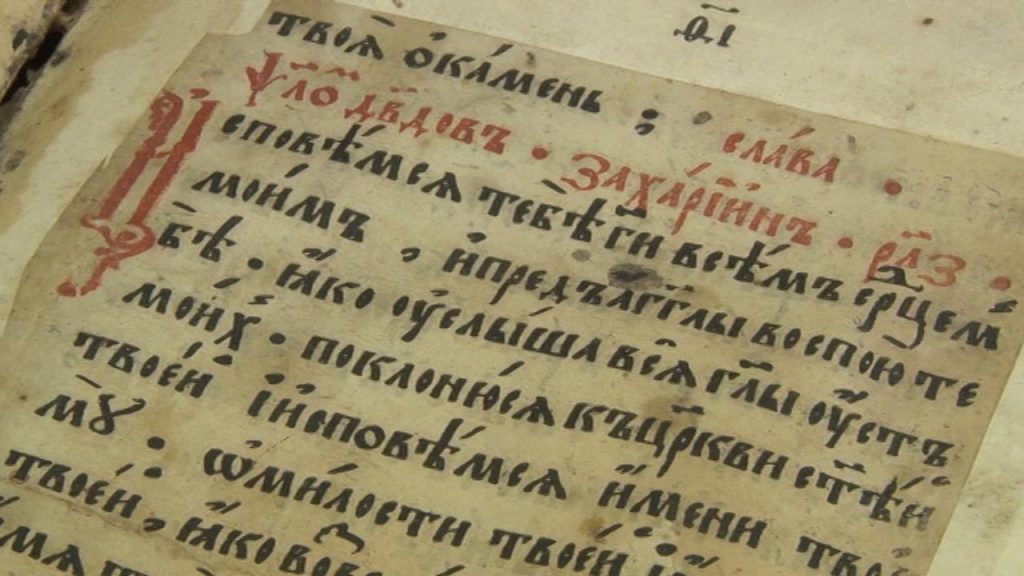 ѳ҃і
твоѧ̀ ока́мень ; сла́ва ·
ѱл҃о дв҃довъ · Заха́рїинъ · рл҃з ·
Исповѣ́мсѧ тебѣ̀ гн҃ всѣ́мъ ср҃цемъ
мои́мъ , и҆предъ а҆гг҃лы воспою̀ те
бѣ̀ · ꙗ҆́ко оу҆слы́ша всѧ̀ гл҃ы оу҆стъ
мои́хъ · поклоню́сѧ къцр҃кви ст҃ѣ́й
твое́й і҆ и҆сповѣ́мсѧ и҆́мени твое
мꙋ̀ · ѡ҆ми́лости твое́й і҆
твое́й , ꙗ҆́ко возве